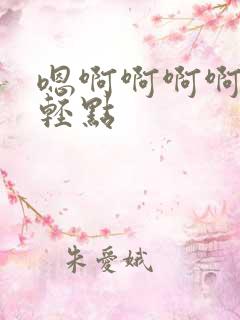 嗯啊啊啊啊
輕點
朱愛娥